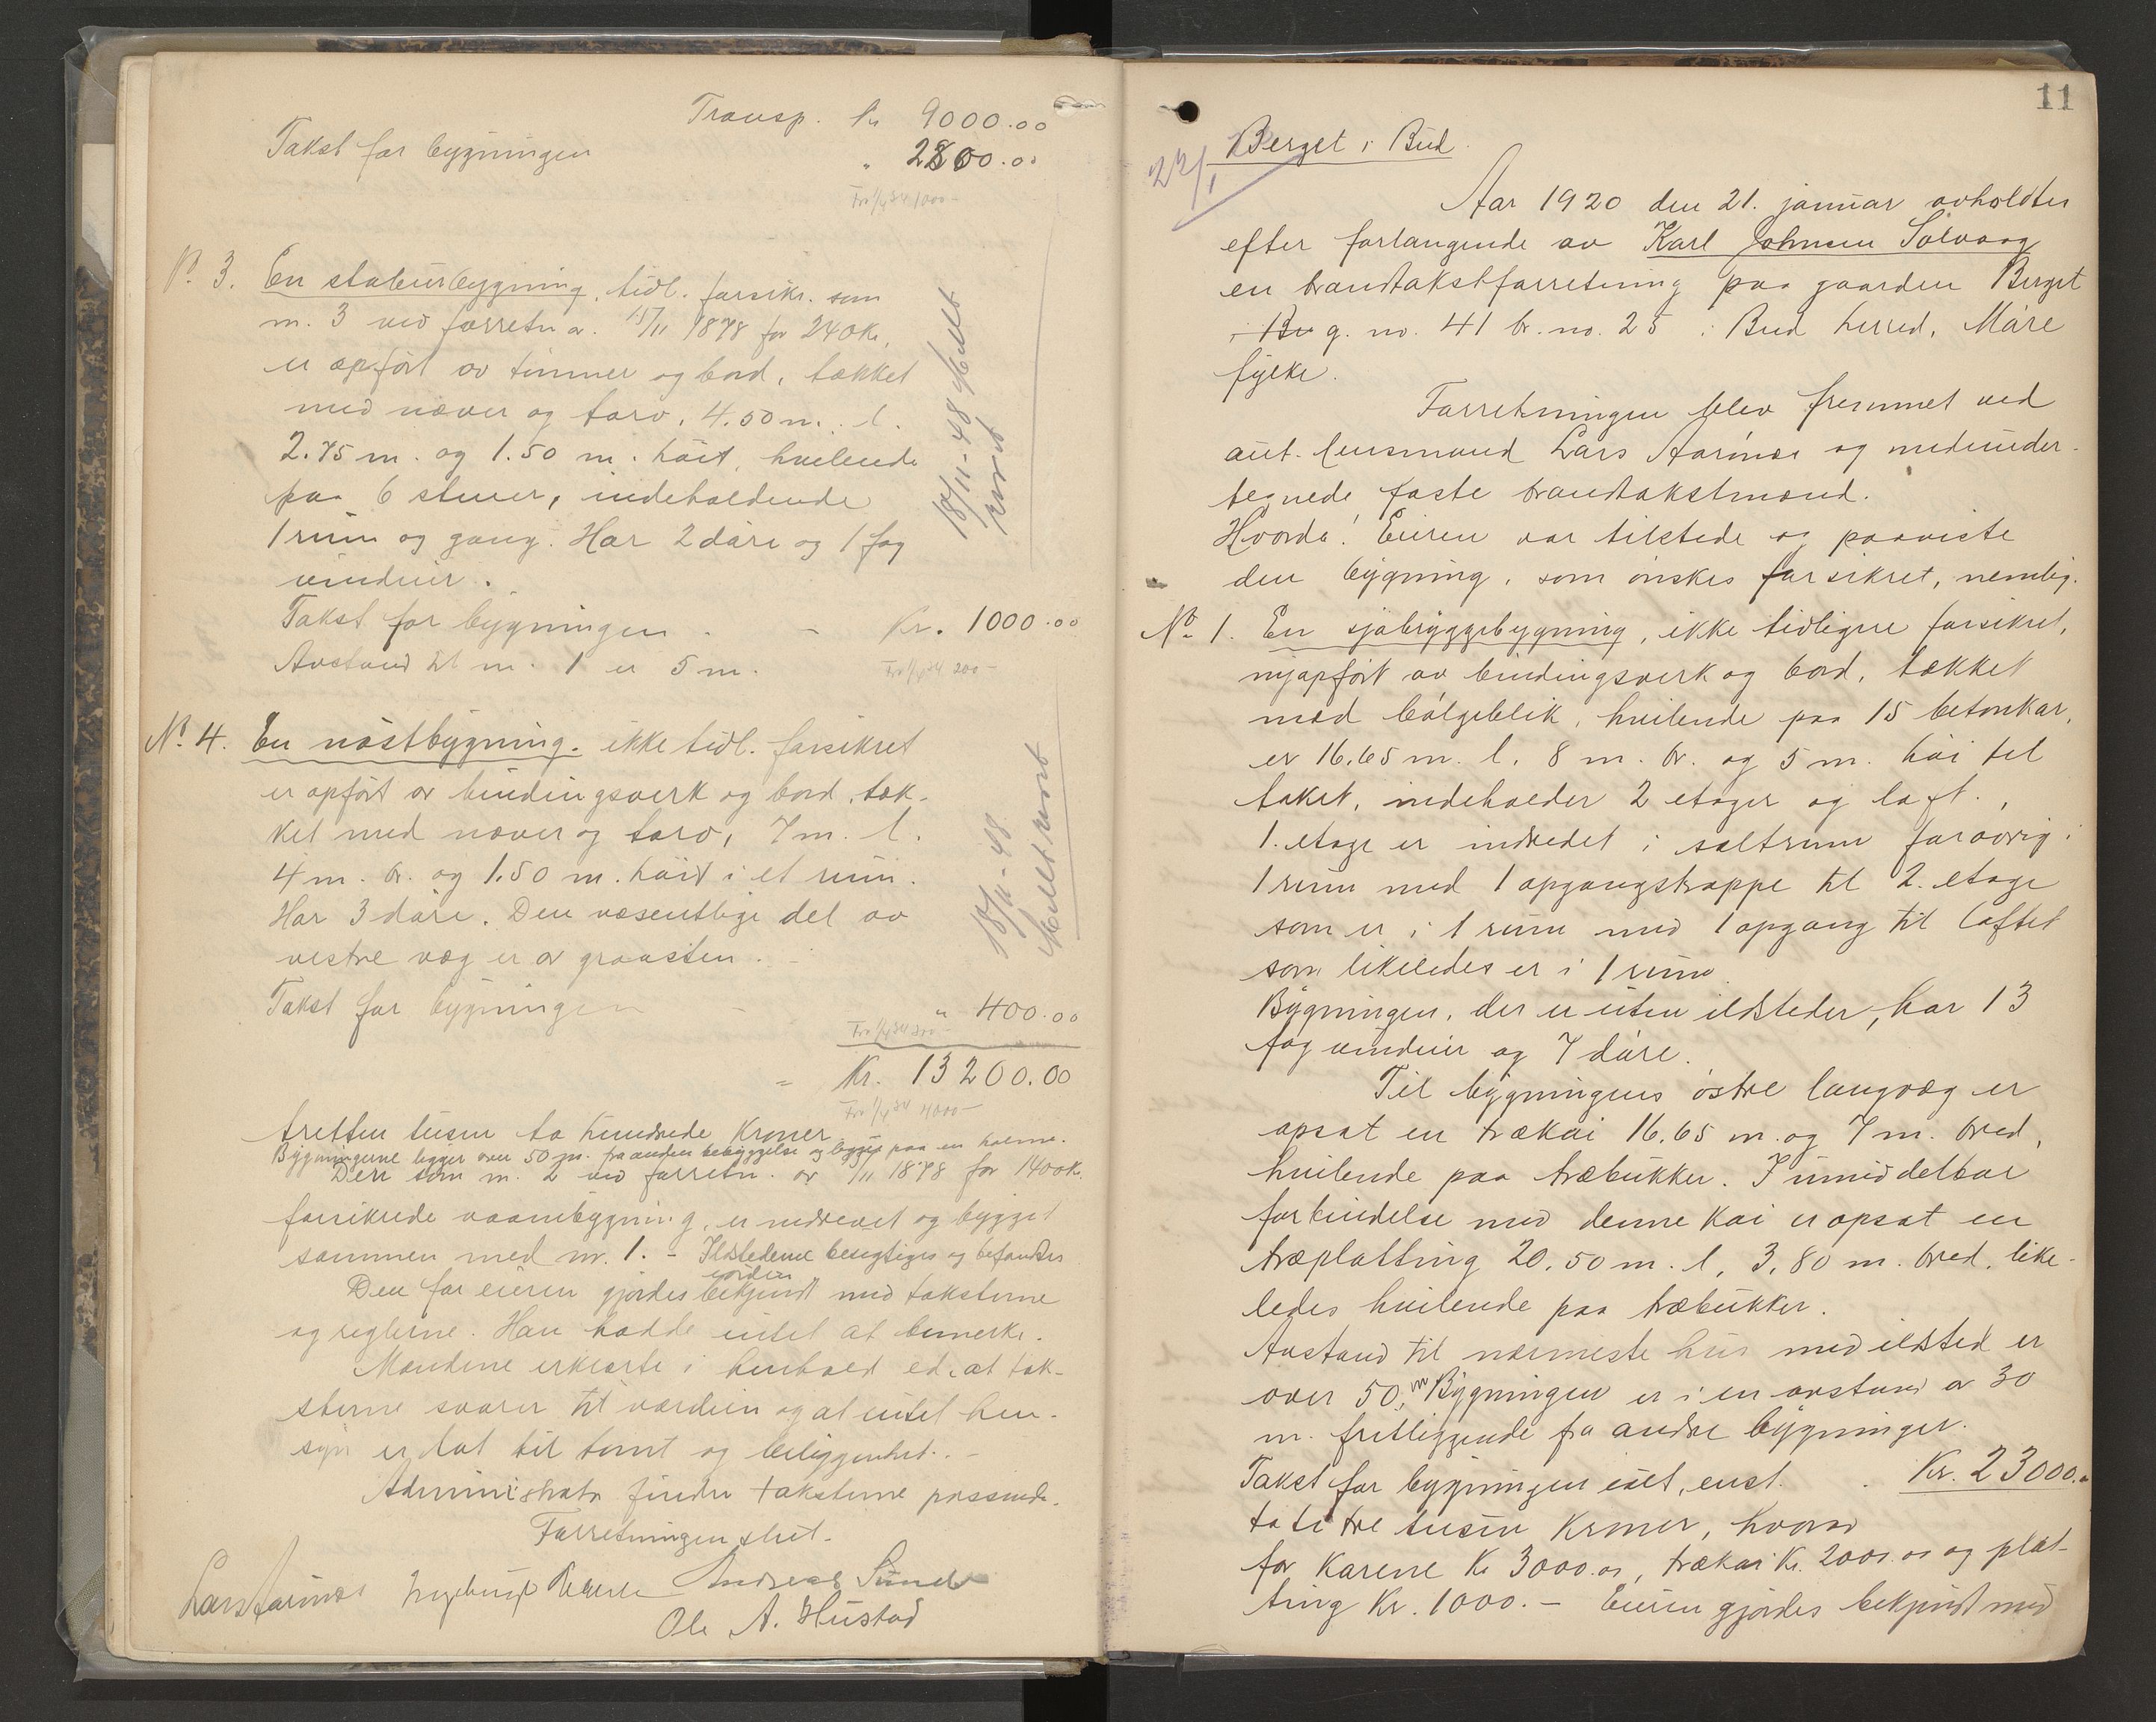 Transp. Kr 9000.00
Takst for bygningen " 2800.00
Fra 1/4 34 1000-
No. 3. En stabursbygning, tidl. forsikr. som
nr. 3 ved forretn. av 15/11 1878 for 240 Kr,
er opført av tømmer og bord, tækket
med næver og torv, 4.50 m. l.
2.75 m. og 1.50 m. høit, hvilende
paa 6 stener, indeholdende
1 rum og gang. Har 2 døre og 1 fag
vinduer.
Takst for bygningen - Kr. 1000.00
Avstand til nr. 1 er 5 m.
Fra 1/4 34 200-
18/11-48 Meldt
revet
No. 4. En nøstbygning. ikke tidl. forsikret
er opført av bindingsverk og bord, tæk-
ket med næver og torv, 7 m. l.
4 m. br. og 1.50 m. høit i et rum.
Har 3 døre. Den væsentlige del av
vestre væg er av graasten.
Takst for bygningen - " 400.00
Fra 1/4 34 300-
18/11-48
Meldt revet
= Kr. 13200.00
Fra 1/4 34 4000-
tretten tusen to hundrede Kroner
Bygningerne ligger over 50 m. fra anden bebyggelse og ligger paa en holme.
Den som nr. 2 ved forretn. av 15/11 1878 for 1400 Kr.
forsikrede vaaningbygning, er nedrevet og bygget
sammen med nr. 1. - Ildstederne besigtiges og befandtes
i orden
Den for eieren gjordes bekjendt med taksterne
og reglerne. Han hadde intet at bemerke.
Mændene erklærte i henhold ed. at tak-
sterne svarer til værdien og at intet hen-
syn er tat til tomt og beliggenhet. -
Administrator finder taksterne passende.
Forretningen slut.
Lars Aarønes Andreas Sunde
Ole A. Hustad
11
Berget i Bud.
22/1
Aar 1920 den 21. januar avholdtes
efter forlangende av Karl Johnsen Solvaag
en brandtakstforretning paa gaarden Berget
i Bu g. no. 41 br. no. 25 i Bud herred, Møre
fylke.
Forretningen blev fremmet ved
aut. lensmand Lars Aarønes og medunder-
tegnede faste brandtakstmænd.
Hvorda! Eieren var tilstede og paaviste
den bygning, som ønskes forsikret, nemlig.
No. 1. En sjøbryggebygning, ikke tidligere forsikret,
nyopført av bindingsverk og bord, tækket
med bølgeblik, hvilende paa 15 betonkar,
er 16.65 m. l. 8 m. br. og 5 m. høi til
taket, indeholder 2 etager og loft.,
1. etage er indredet i saltrum forøvrig i
1 rum med 1 opgangstrappe til 2. etage
som er i 1 rum med 1 opgang til loftet
som likeledes er i 1 rum.
Bygningen, der er uten ildsteder, har 13
fag vinduer og 7 døre.
Til bygningens østre langvæg er
opsat en trækai 16.65 m. og 7 m. bred,
hvilende paa træbukker. I umiddelbar
forbindelse med denne kai er opsat en
træplatting 20.50 m. l, 3,80 m. bred, like-
ledes hvilende paa træbukker.
Avstand til nærmeste hus med ildsted er
over 50 m. Bygningen er i en avstand av 30
m. fritliggende fra andre bygninger.
Takst for bygningen ialt, enst. . Kr. 23000.-
toti tre tusen Kroner, hvorav
for karene Kr 3000.00, trækai Kr. 2000.00 og plat-
ting Kr. 1000. - Eieren gjordes bekjendt med